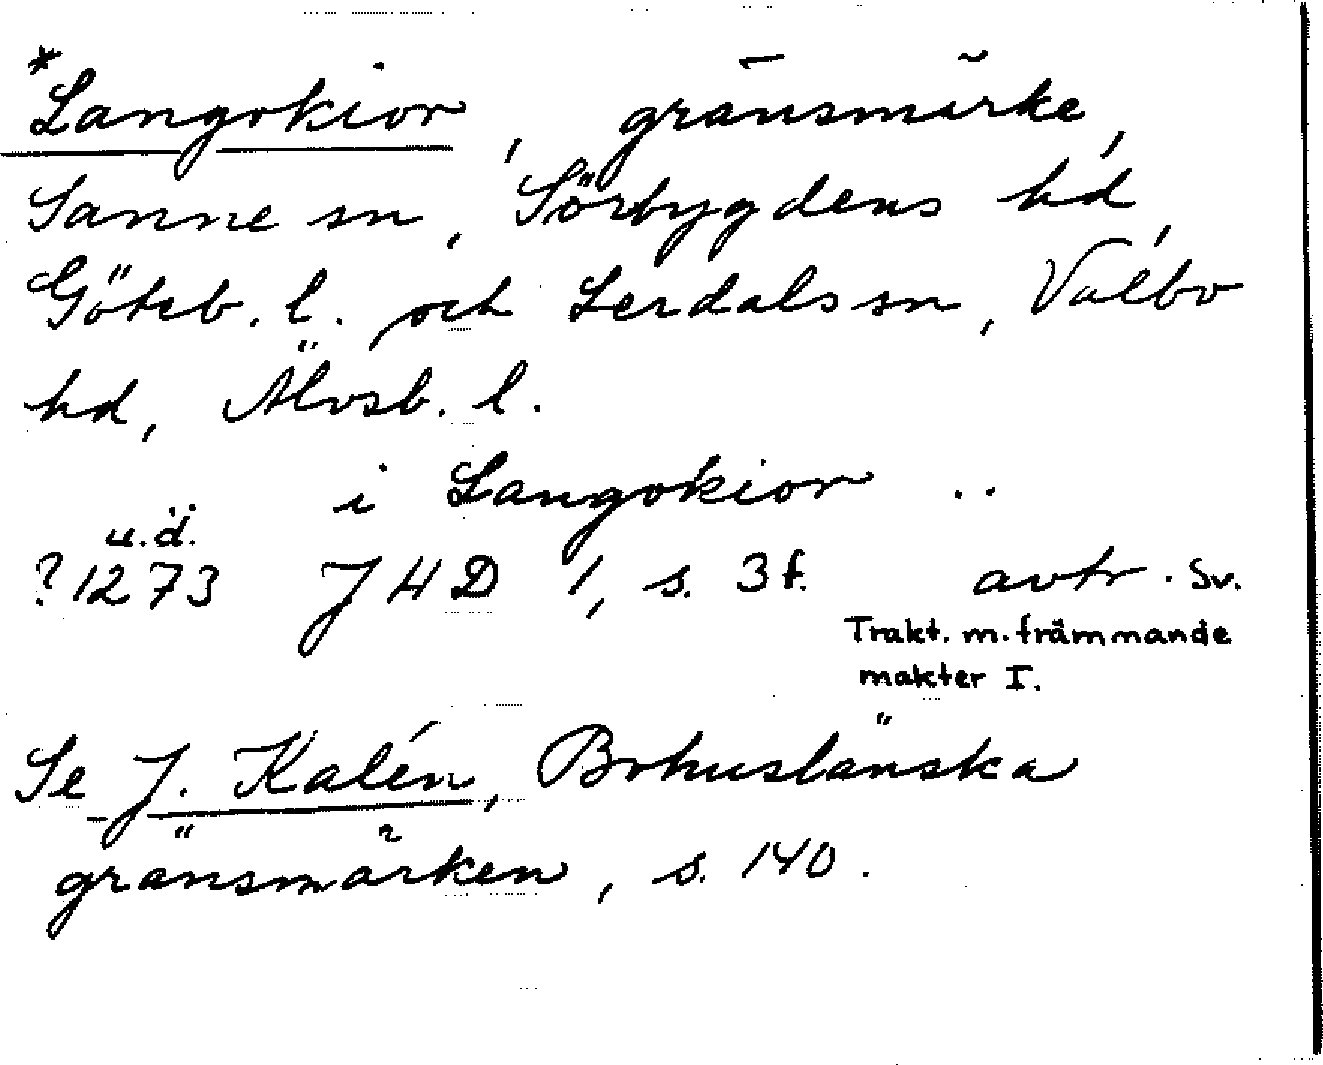 *Langokior, gränsmärke,
Sanne sn, Sörbygdens hd,
Göteb. l. och Lerdals sn, Valbo
hd, Älvsb. l.
i Langokior ..
u.d.
?1273 J H D 1, s. 3 f. avtr. Sv.
Trakt. m. främmande
makter I.
Se J. Kalén, Bohuslänska
gränsmärken, s. 140.